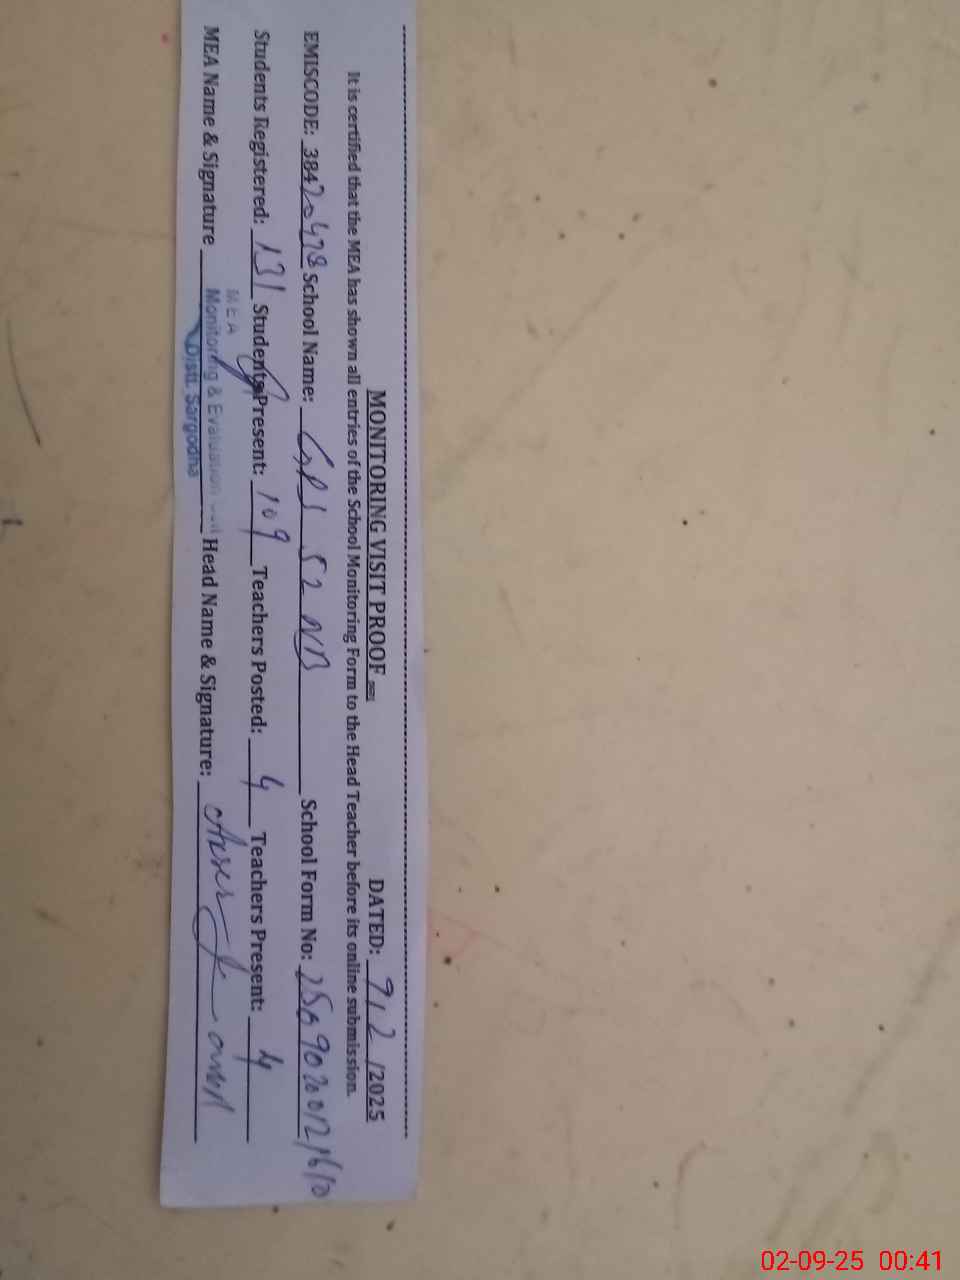 MONITORING VISIT PROOF DATED: 9/2/2025
It is certified that the MEA has shown all entries of the School Monitoring Form to the Head Teacher before its online submission.
EMISCODE: 38420478 School Name: GPS 52 NB School Form No:
Students Registered: 131 Students Present: 109 Teachers Posted: 4 Teachers Present: 4
MEA Name & Signature Head Name & Signature:
MEA
Monitoring & Evaluation Cell
Distt. Sargodha
02-09-25 00:41